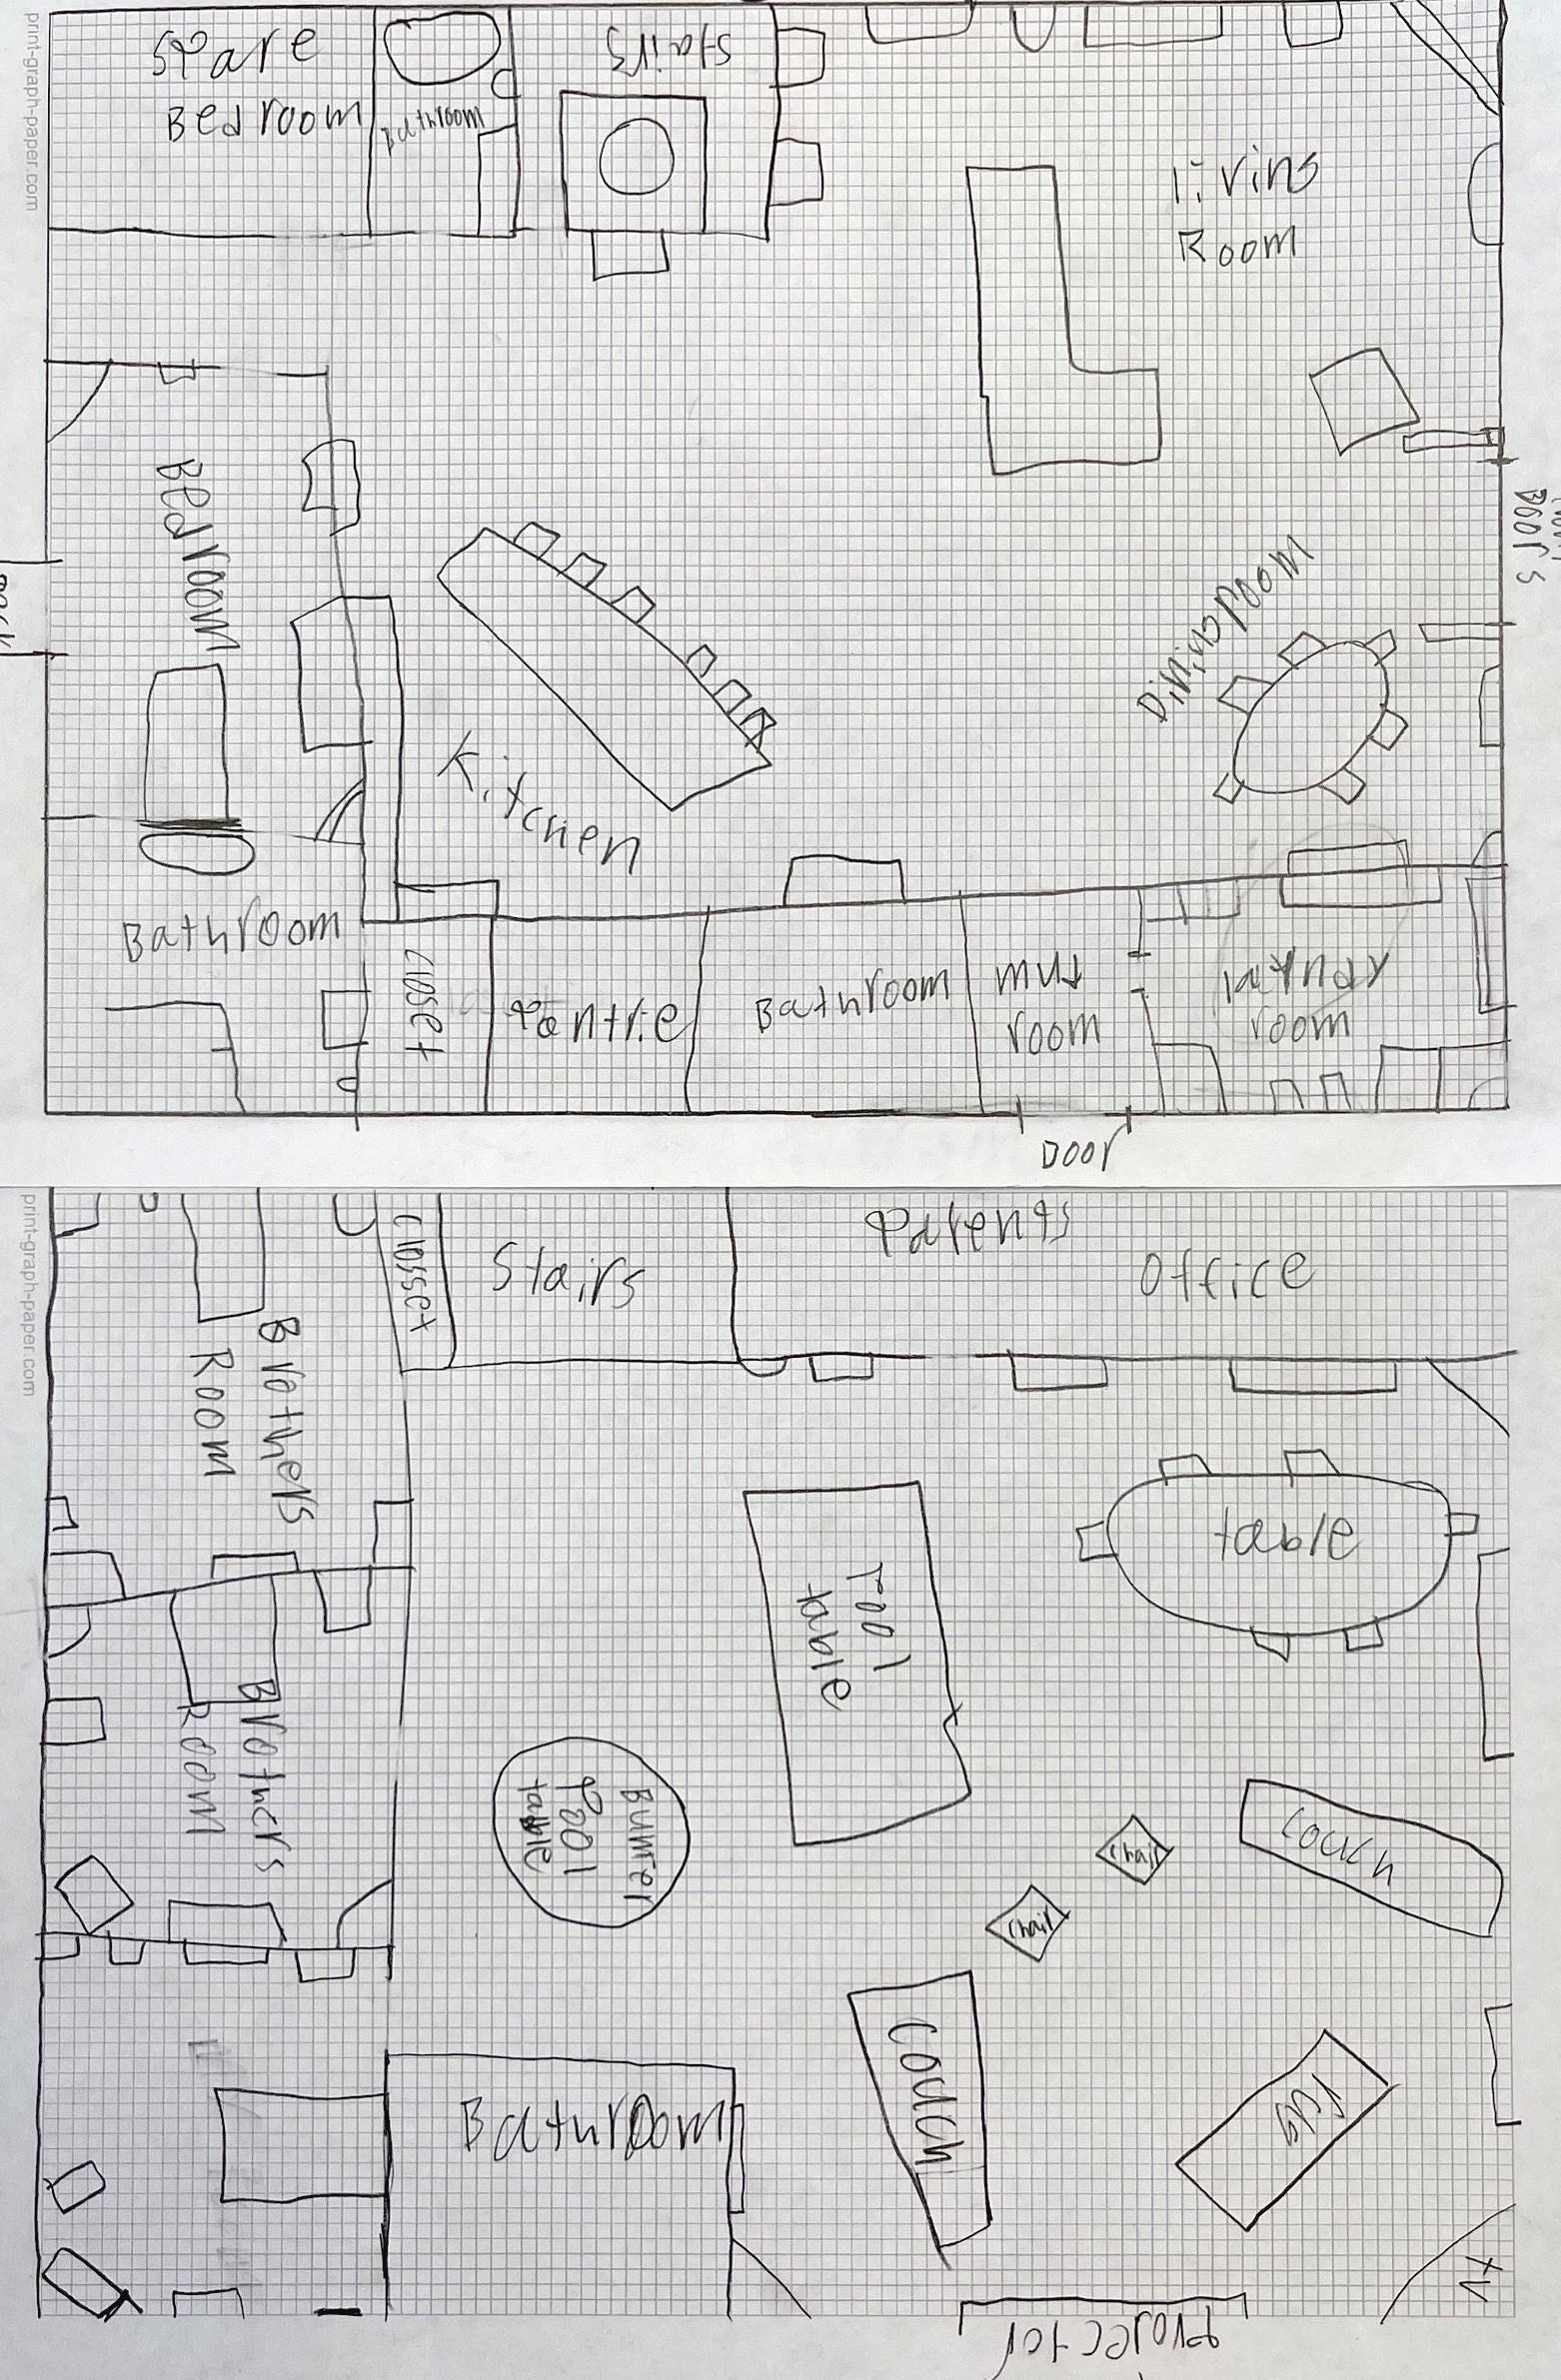 print-graph-paper.com
Spare
Bedroom
Bathroom
stairs
living
Room
Bedroom
Doors
Dining Room
Kitchen
Bathroom
closet
Pantrie
Bathroom
mud
room
laundry
room
Door
print-graph-paper.com
closset
Stairs
Parents
office
Brothers
Room
table
Pool
table
Brothers
Room
Bumper
Pool
table
chair
couch
chair
couch
rug
Bathroom
TV
Projector